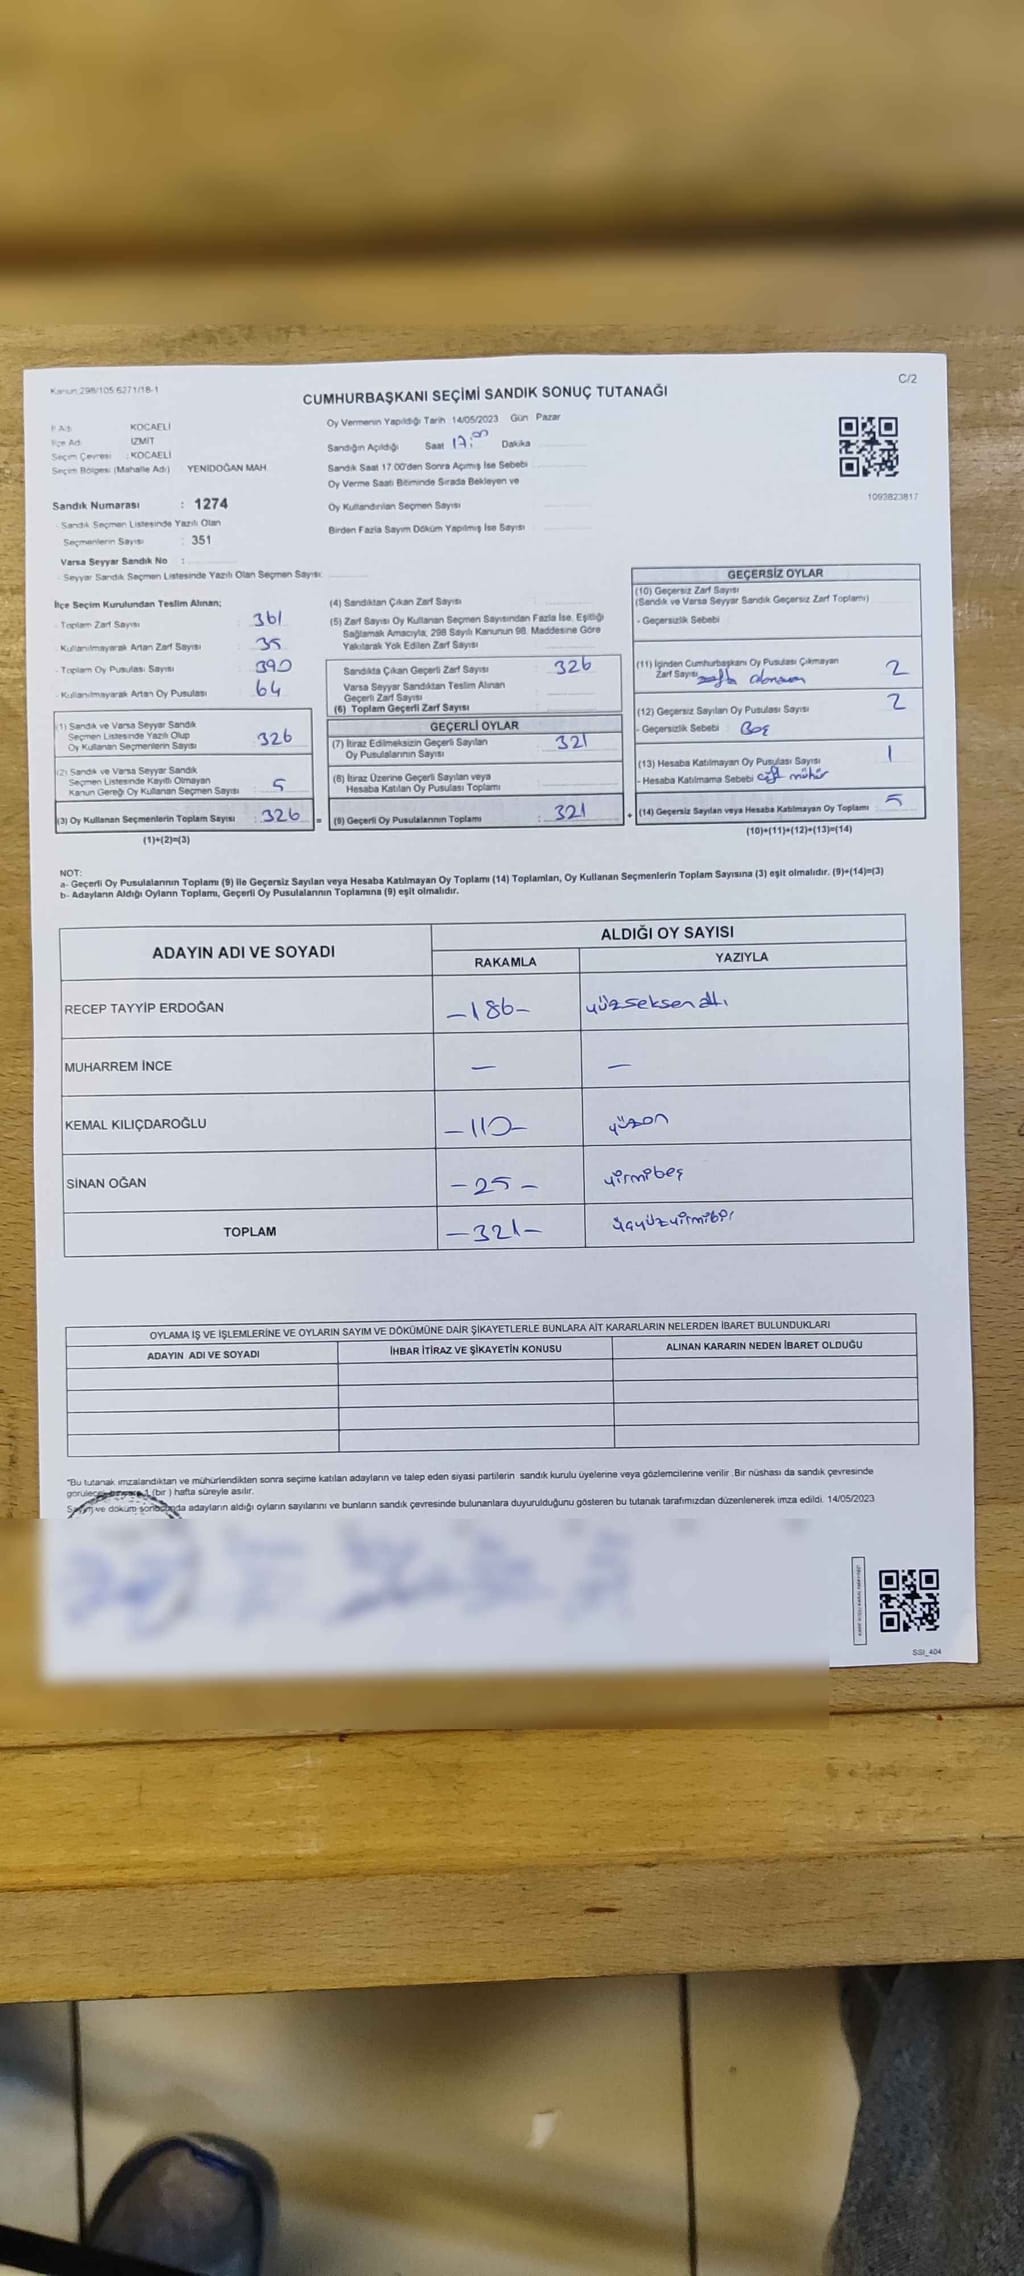 Kanun:298/105 6271/18-1
C/2
CUMHURBAŞKANI SEÇİMİ SANDIK SONUÇ TUTANAĞI
İl Adı KOCAELİ
İlçe Adı İZMİT
Seçim Çevresi : KOCAELİ
Seçim Bölgesi (Mahalle Adı) YENİDOĞAN MAH.
Sandık Numarası : 1274
- Sandık Seçmen Listesinde Yazılı Olan
Seçmenlerin Sayısı : 351
Varsa Seyyar Sandık No :
- Seyyar Sandık Seçmen Listesinde Yazılı Olan Seçmen Sayısı:
Oy Vermenin Yapıldığı Tarih 14/05/2023 Gün Pazar
Sandığın Açıldığı Saat 17:00 Dakika
Sandık Saat 17.00'den Sonra Açımış İse Sebebi
Oy Verme Saati Bitiminde Sırada Bekleyen ve
Oy Kullandırılan Seçmen Sayısı
Birden Fazla Sayım Döküm Yapılmış İse Sayısı
1093823817
İlçe Seçim Kurulundan Teslim Alınan;
- Toplam Zarf Sayısı : 361
- Kullanılmayarak Artan Zarf Sayısı : 35
- Toplam Oy Pusulası Sayısı : 390
- Kullanılmayarak Artan Oy Pusulası : 64
(1) Sandık ve Varsa Seyyar Sandık
Seçmen Listesinde Yazılı Olup
Oy Kullanan Seçmenlerin Sayısı : 326
(2) Sandık ve Varsa Seyyar Sandık
Seçmen Listesinde Kayıtlı Olmayan
Kanun Gereği Oy Kullanan Seçmen Sayısı : 5
(3) Oy Kullanan Seçmenlerin Toplam Sayısı : 326 =
(1)+(2)=(3)
(4) Sandıktan Çıkan Zarf Sayısı
(5) Zarf Sayısı Oy Kullanan Seçmen Sayısından Fazla İse, Eşitliği
Sağlamak Amacıyla, 298 Sayılı Kanunun 98. Maddesine Göre
Yakılarak Yok Edilen Zarf Sayısı
Sandıkta Çıkan Geçerli Zarf Sayısı : 326
Varsa Seyyar Sandıktan Teslim Alınan
Geçerli Zarf Sayısı
(6) Toplam Geçerli Zarf Sayısı
GEÇERLİ OYLAR
(7) İtiraz Edilmeksizin Geçerli Sayılan
Oy Pusulalarının Sayısı : 321
(8) İtiraz Üzerine Geçerli Sayılan veya
Hesaba Katılan Oy Pusulası Toplamı
(9) Geçerli Oy Pusulalarının Toplamı : 321 +
GEÇERSİZ OYLAR
(10) Geçersiz Zarf Sayısı
(Sandık ve Varsa Seyyar Sandık Geçersiz Zarf Toplamı)
- Geçersizlik Sebebi
(11) İçinden Cumhurbaşkanı Oy Pusulası Çıkmayan
Zarf Sayısı 2
(12) Geçersiz Sayılan Oy Pusulası Sayısı 2
- Geçersizlik Sebebi Boş
(13) Hesaba Katılmayan Oy Pusulası Sayısı 1
- Hesaba Katılmama Sebebi çift mühür
(14) Geçersiz Sayılan veya Hesaba Katılmayan Oy Toplamı 5
(10)+(11)+(12)+(13)=(14)
NOT:
a- Geçerli Oy Pusulalarının Toplamı (9) ile Geçersiz Sayılan veya Hesaba Katılmayan Oy Toplamı (14) Toplamları, Oy Kullanan Seçmenlerin Toplam Sayısına (3) eşit olmalıdır. (9)+(14)=(3)
b- Adayların Aldığı Oyların Toplamı, Geçerli Oy Pusulalarının Toplamına (9) eşit olmalıdır.
ADAYIN ADI VE SOYADI
ALDIĞI OY SAYISI
RAKAMLA YAZIYLA
RECEP TAYYİP ERDOĞAN -186- yüzseksenaltı
MUHARREM İNCE - -
KEMAL KILIÇDAROĞLU -110- yüzon
SİNAN OĞAN -25- yirmibeş
TOPLAM -321- üçyüzyirmibir
OYLAMA İŞ VE İŞLEMLERİNE VE OYLARIN SAYIM VE DÖKÜMÜNE DAİR ŞİKAYETLERLE BUNLARA AİT KARARLARIN NELERDEN İBARET BULUNDUKLARI
ADAYIN ADI VE SOYADI İHBAR İTİRAZ VE ŞİKAYETİN KONUSU ALINAN KARARIN NEDEN İBARET OLDUĞU
"Bu tutanak imzalandıktan ve mühürlendikten sonra seçime katılan adayların ve talep eden siyasi partilerin sandık kurulu üyelerine veya gözlemcilerine verilir. Bir nüshası da sandık çevresinde
1 (bir ) hafta süreyle asılır.
Sayım ve döküm sonucunda adayların aldığı oyların sayılarını ve bunların sandık çevresinde bulunanlara duyurulduğunu gösteren bu tutanak tarafımızdan düzenlenerek imza edildi. 14/05/2023
SSI_404